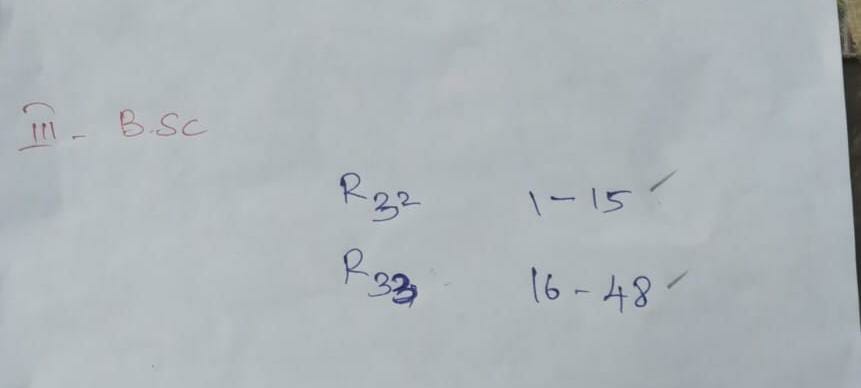 III - B.SC
R32 1-15
R33 16-48